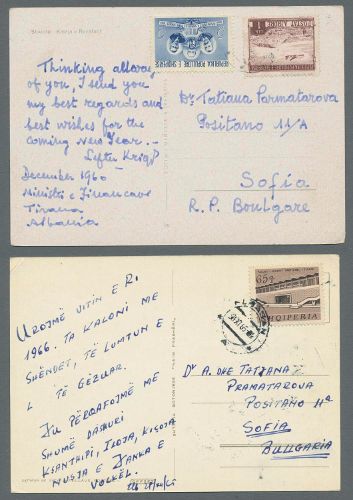 Thinking allways
of you, I send you
my best regards and
best wishes for the
coming New Year. —
Lefter
December 1960
Ministri e Financave
Tirana
Albania
REPUBLIKA POPULLORE E SHQIPERISE
POSTAT AJRORE
1
Dr. Tatiana Parmatarova
Positano 11/A
Sofia
R. P. Boulgare
UROJMË VITIN E RI
1966. TA KALONI ME
SHËNDET, TË LUMTUN E
TË GËZUAR.
JU PËRQAFOJMË ME
SHUMË DASHURI
KSANTHIPI,
NUSJA E JANKA E
65q
SHQIPERIA
Dr A. DHE TATJANA
PRAMATAROVA
POSITANO 11a
SOFIA
BULLGARIA